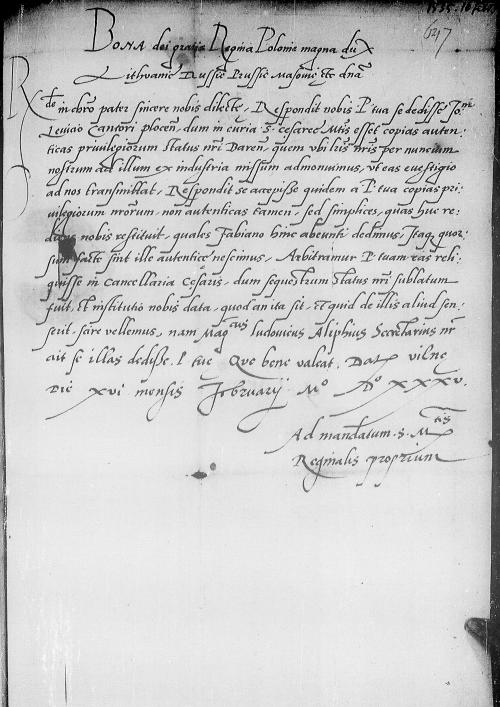 1535. 16 febr
647
BONA dei gratia Regina Polonie magna dux
Lithuanie Russie Prussie Masovie etc dna
Rde in chro pater sincere nobis dilecte, Respondit nobis P. tua se dedisse Jo.ni
Leviao Cantori plocen., dum in curia S. cesaree Mtis esset copias auten-
ticas privilegiorum Status nri Baren, quem ubi lris nris per nuncium
nostrum ad illum ex industria missum admonuimus, ut eas evestigio
ad nos transmittat, Respondit se accepisse quidem a P. tua copias pri-
vilegiorum nrorum, non autenticas tamen, sed simplices, quas huc re-
diens nobis restituit, quales Fabiano hinc abeunti dedimus, Itaq. quor-
sum facte sint ille autentice nescimus, Arbitramur P. tuam eas reli-
quisse in cancellaria Cesaris, dum sequestrum Status nri sublatum
fuit, Et institutio nobis data, quod an ita sit, et quid de illis aliud sen-
serit, scire vellemus, nam Mag.cus Ludovicus Aliphius Secretarius nr
ait se illas dedisse. P. tue Que bene valeat. Dat. Vilne
Die XVI mensis Februarij. Mo Do XXXV.
Ad mandatum S. Mtis
Reginalis proprium